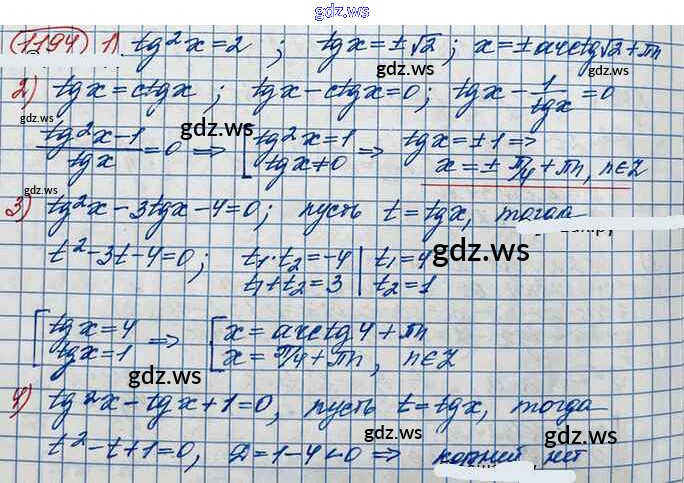 gdz.ws
1194) 1) tg²x=2 ; tgx=±√2 ; x=±arctg√2+πn
gdz.ws
2) tgx=ctgx ; tgx-ctgx=0 ; tgx-1/tgx=0
gdz.ws gdz.ws
(tg²x-1)/tgx=0 => [tg²x=1 tgx≠0 => tgx=±1 =>
x=±π/4+πn, n∈Z
gdz.ws
3) tg²x-3tgx-4=0; пусть t=tgx, тогда
t²-3t-4=0; t₁·t₂=-4 | t₁=4
t₁+t₂=3 | t₂=1
gdz.ws gdz.ws
[tgx=4 => [x=arctg4+πn
tgx=1 x=π/4+πn, n∈Z
gdz.ws gdz.ws
4) tg²x-tgx+1=0, пусть t=tgx, тогда
gdz.ws gdz.ws
t²-t+1=0, D=1-4<0 => корней нет
gdz.ws